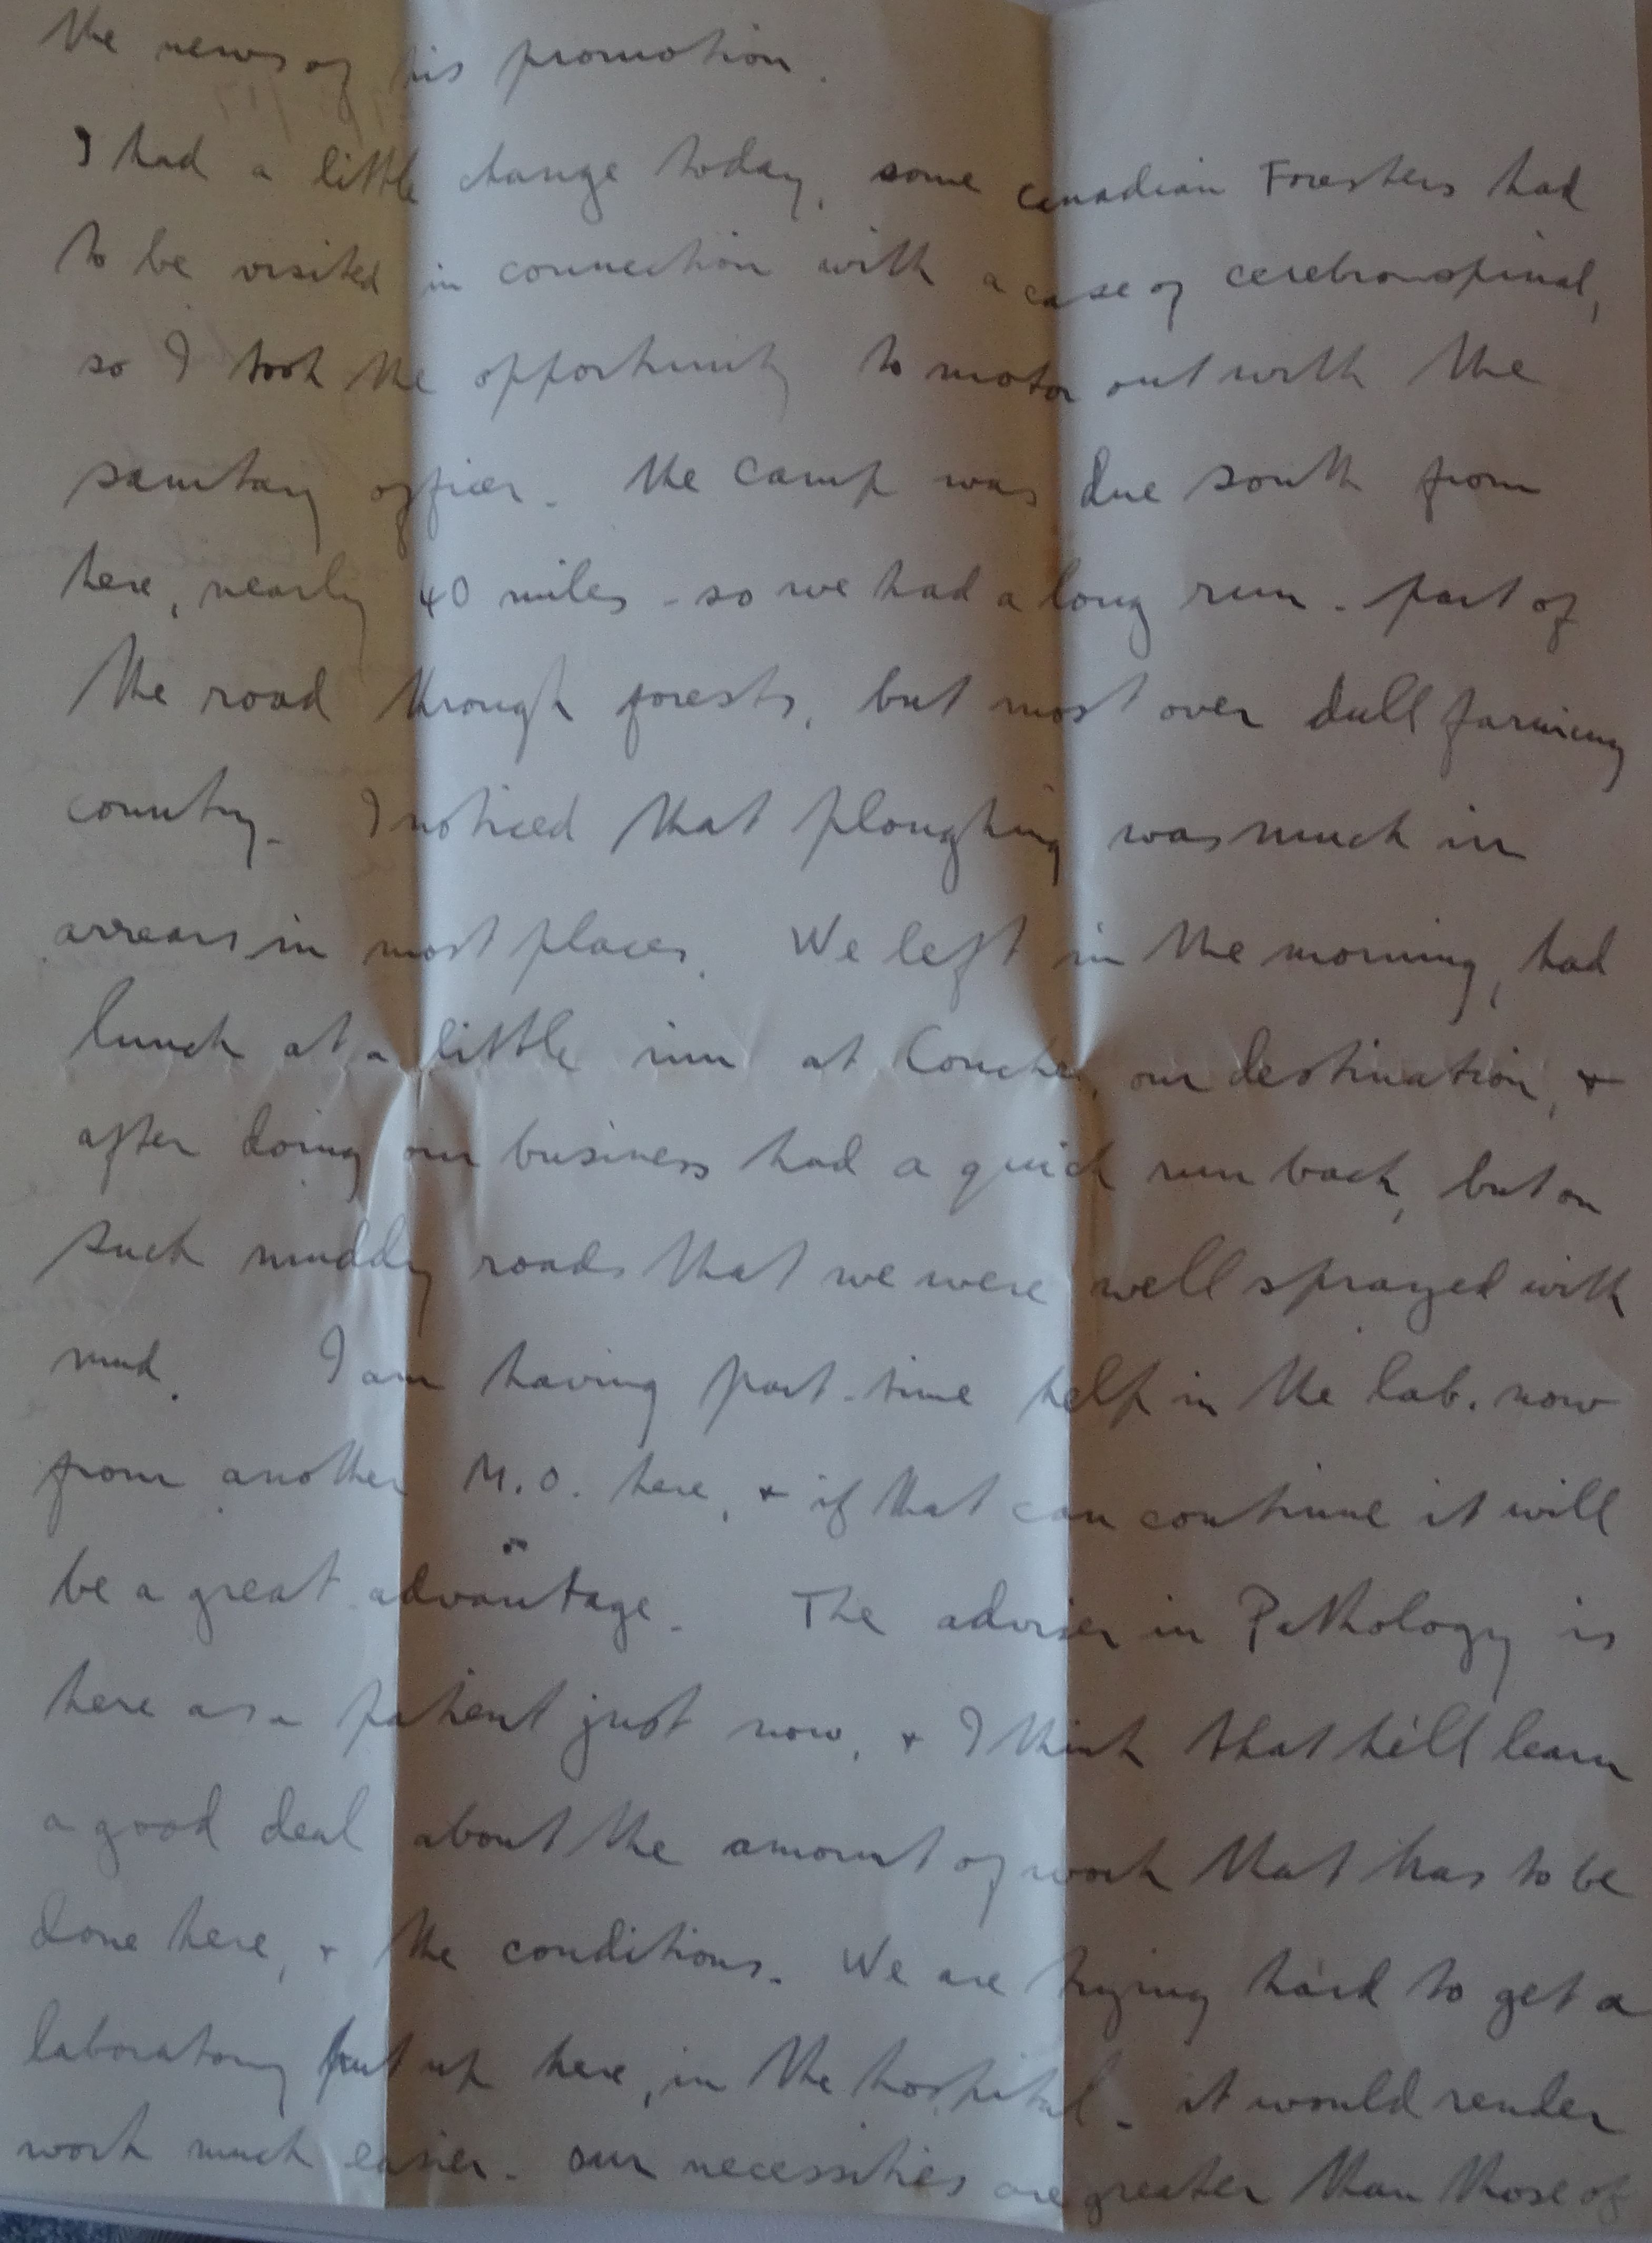 the news of his promotion.
I had a little change today, some Canadian Foresters had
to be visited in connection with a case of cerebrospinal,
so I took the opportunity to motor out with the
sanitary officer. The camp was due south from
here, nearly 40 miles - so we had a long run - part of
the road through forests, but most over dull farming
country. I noticed that ploughing was much in
arrears in most places. We left in the morning, had
lunch at a little inn at Conches, our destination, +
after doing our business had a quick run back, but on
such muddy roads that we were well sprayed with
mud. I am having part-time help in the lab. now
from another M.O. here, + if that can continue it will
be a great advantage. The adviser in Pathology is
here as a patient just now, + I think that he'll learn
a good deal about the amount of work that has to be
done here, + the conditions. We are trying hard to get a
laboratory put up here, in the hospital - it would render
work much easier. Our necessities are greater than those of